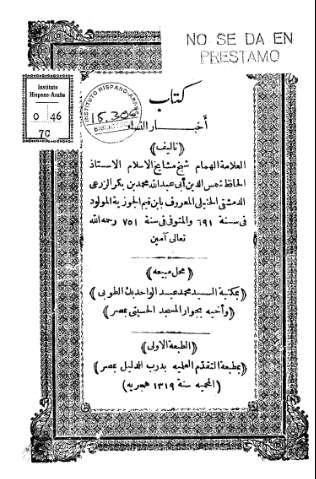 NO SE DA EN
PRESTAMO
Instituto
Hispano-Arabe
0 46
7C
INSTITUTO HISPANO-ARABE
15.300
كتاب
أخبار النساء
﴿تأليف﴾
العلامة الهمام شيخ مشايخ الاسلام الاستاذ
الحافظ شمس الدين أبى عبدالله محمد بن بكر الزرعى
الدمشقى الحنبلى المعروف بابن قيم الجوزية المولود
فى سنة ٦٩١ والمتوفى فى سنة ٧٥١ رحمه الله
تعالى آمين
﴿محل مبيعه﴾
﴿بمكتبة السيد محمد عبد الواحد بك الطوبى﴾
﴿وأخيه بجوار المسجد الحسينى بمصر﴾
﴿الطبعة الاولى﴾
﴿بمطبعة التقدم العلميه بدرب الدليل بمصر﴾
(المحميه سنة ١٣١٩ هجريه)